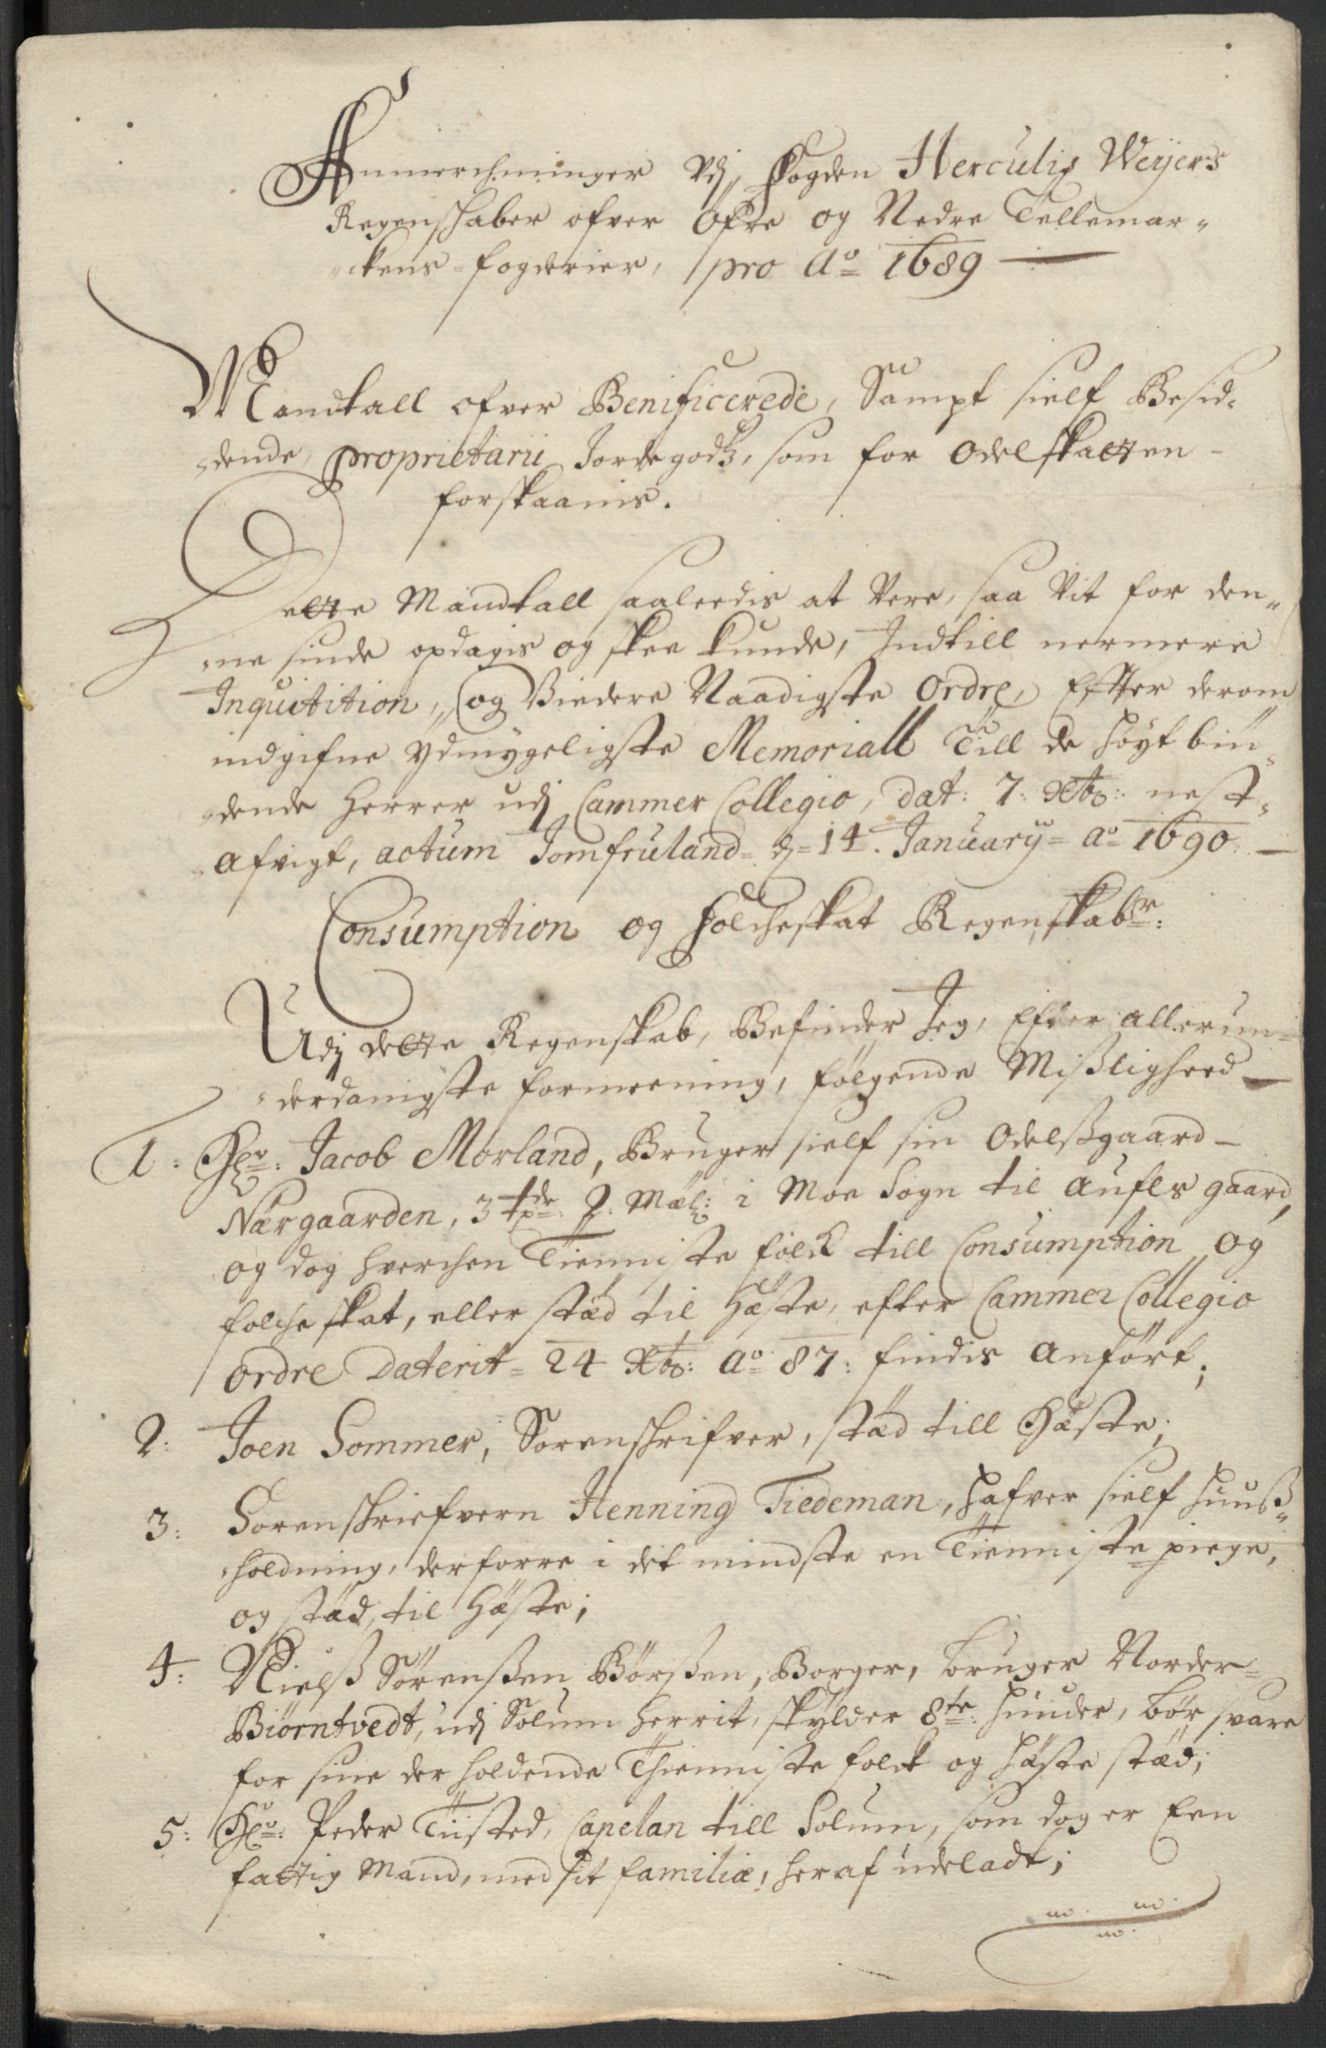 Anmerchninger Udj Fogden Herculis Weyers
Regenschaber ofver Øfre og Nedre Tellemar„
„ckens fogderier, pro Ao 1689
Mandtall ofver Benificerede, Sampt sielf Besid„
„dende, proprietarii Jordegodtz, som for Odelskatten
forskaanis.
Dette Mandtall saaleedis at Vere, saa Vit for den„
„ne sinde opdagis og skee kunde, Indtill nermere
Inquitition, og Viedere Naadigste Ordre, Efter derom
indgifne ydmygeligste Memoriall Till de høyt bin„
„dende Herrer udj Cammer Collegio, dat: 7: Xbr: nest„
„afvigt, actum Jomfruland d: 14. January ao 1690.
Consumption og Folcheskat Regenskaber:
Udj dette Regenskab, Befinder Jeg, Efter allerun„
„derdanigste formeening, følgende Mißligheed
1: Hr: Jacob Morland, Bruger sielf sin Odelßgaard
Nærgaarden, 3 tdr: 2: Mæl: i Moe Sogn til aufls gaard,
og dog hverchen Tienniste folck till Consumption og
folcheskat, eller stæd til Hæste, efter Cammer Collegio
ordre Daterit 24 Xbr: Ao 87: findis anført;
2: Joen Sommer, Sorenschrifver, stæd till Hæste;
3: Sorenschriefvern Henning Tiedeman, hafver sielf huuß„
„holdning, derforre i det mindste en Tienniste piege,
og stæd, til Hæste;
4: Nielß Sørenßen Børßen, Borger, bruger Norder„
Biørntvedt, udj Solum Herrit, skylder 8te: huuder, bør svare
for sine der holdende Thienniste folck og Hæste stæd;
5: Hr: Peder Tiisted, Capelan till Solum, som dog er Een
fattig Mand, med sit familiæ, heraf udeladt;